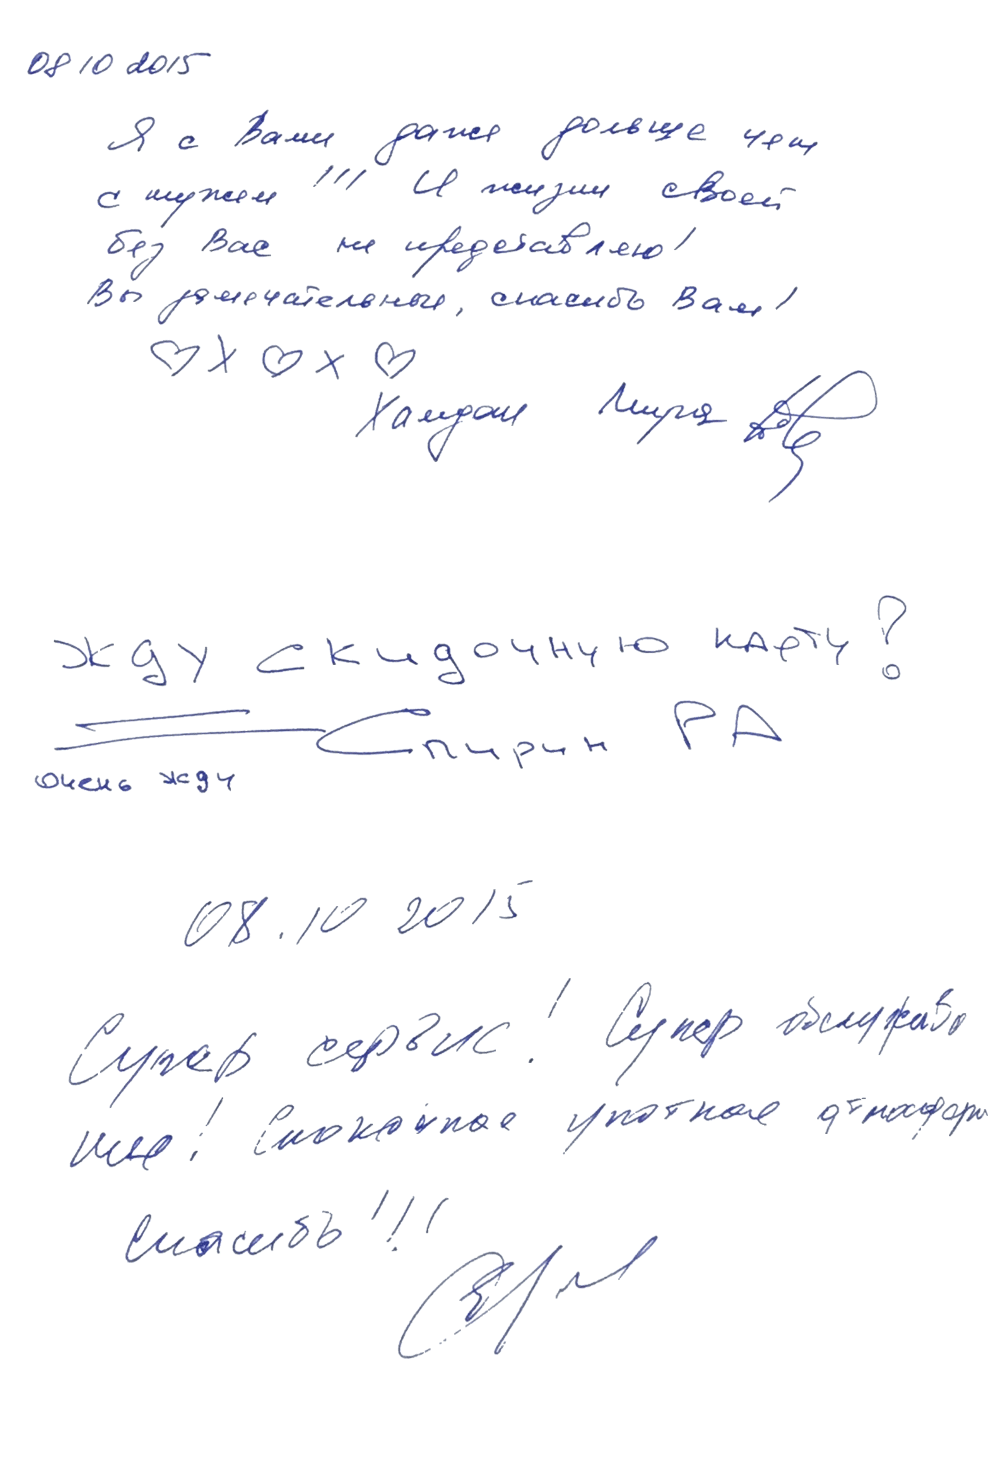 08 10 2015
Я с Вами даже дольше чем
с мужем!!! И жизни своей
без Вас не представляю!
Вы замечательные, спасибо Вам!
Хамдан Миря
Жду скидочную карту?
Спирин РА
очень жду
08.10 2015
Супер сервис! Супер обслужива
ние! Спокойная уютная атмосфера
Спасибо!!!